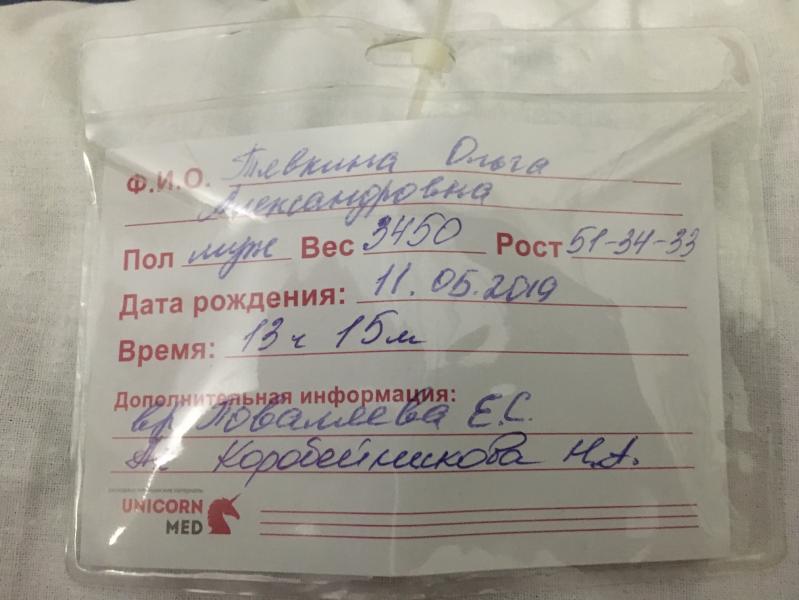 Ф.И.О. Тявкина Ольга
Александровна
Пол муж Вес 3450 Рост 51-34-33
Дата рождения: 11.05.2019
Время: 13 ч 15 м
Дополнительная информация:
вр Поваляева Е.С.
Коробейникова Н.А.
UNICORN
MED